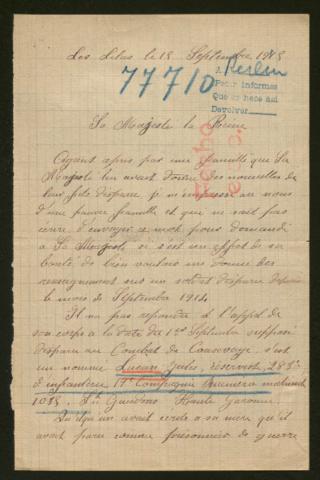 Les Lilas le 18 Septembre 1915
77710
A Berlin
Pour informes
Que se hace asi
Devolver
Sa Majesté la Reine
Ayant apris par une famille que Sa
Majesté leur avait donné des nouvelles de
leur fils disparu je m'empresse au nom
d'une pauvre famille et qui ne sait pas
écrire d'envoyer ce mot pour demandé
à Sa Majesté si c'est un effet de sa
bonté de bien vouloir me donné des
renseignements sur un soldat disparu depuis
le mois de Septembre 1914
Il n'a pas repondu à l'appel de
son corps à la date du 1er Septembre supposé
disparu au Combat de c'est
un nommé Lucan Jules réserviste 283e
d'infanterie 17e Compagnie matricule
Haute Garonne.
Quelqu'un avait à sa mère qu'il
avait paru comme prisonnier de guerre